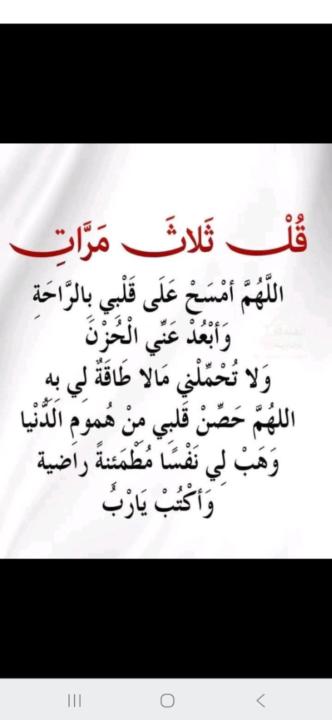 قُلْ ثَلاثَ مَرَّاتِ
اللَّهُمَّ أمْسَحْ عَلَى قَلْبي بِالرَّاحَةِ
وَأبْعُدْ عَنِّي الْحُزْنَ
وَلا تُحْمِّلْني مَالا طَاقَةٌ لِي بِهِ
اللهُمَّ حَصِّنْ قَلبِي مِنْ هُمومِ الدُّنْيا
وَهَبْ لِي نَفْسًا مُطْمَئنةً راضية
وَأكْتُبْ يَارْبُ